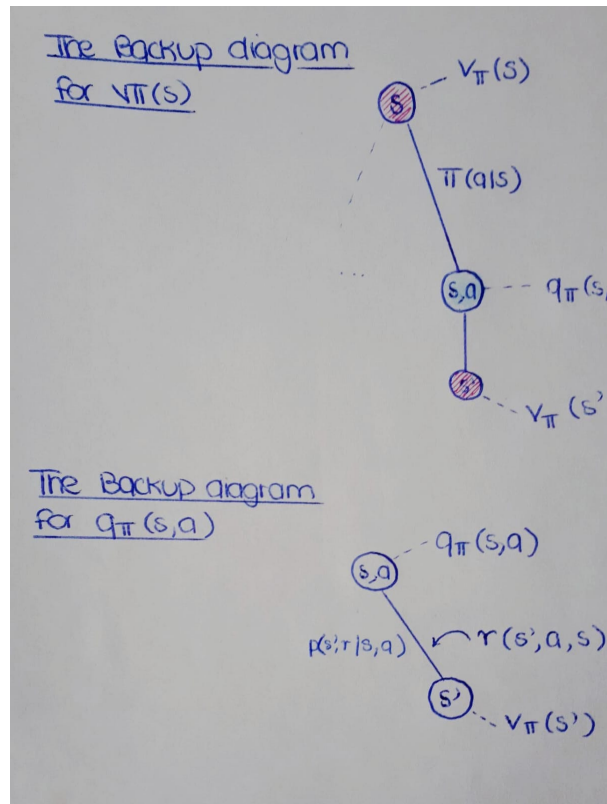 The Backup diagram
for Vπ(s)
Vπ(s)
s
π(a|s)
...
s,a
qπ(s,
s'
Vπ(s'
The Backup diagram
for qπ(s,a)
qπ(s,a)
s,a
p(s',r|s,a)
r(s',a,s)
s'
Vπ(s')